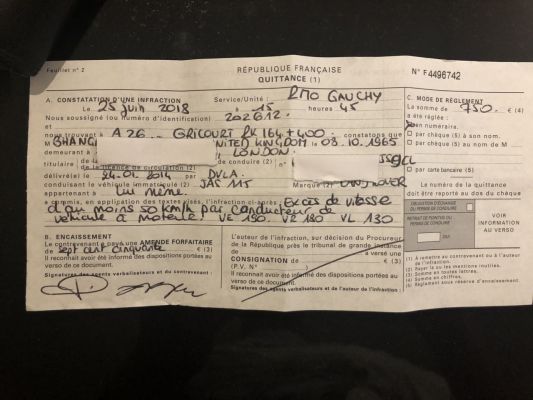 Feuillet n° 2
RÉPUBLIQUE FRANÇAISE
QUITTANCE (1)
N° F4496742
A. CONSTATATION D'UNE INFRACTION
Service/Unité : RMO GAUCHY
Le 23 juin 2018 à 15 heures 45
Nous soussigné (ou numéro d'identification) 202612.
nous trouvant à A 26 GRICOURT PK 164+400
UNITED KINGDOM 03.10.1965
demeurant à LONDON.
titulaire de conduire (2) n°
délivré(e) le 24.01.2014 par DVLA
conduisant le véhicule immatriculé (2) JAS 115 Marque (2)
appartenant à Lui même
a commis, en application des textes visés, l'infraction ci-après : Excès de vitesse
d'au moins 50 km/h par conducteur de
véhicule à moteur VE 180 VZ 180 VL 130
C. MODE DE RÈGLEMENT
La somme de 750 € (4)
a été réglée :
en numéraire.
par chèque (5) à son nom.
par chèque au nom de M
par carte bancaire (5)
Le numéro de la quittance
doit être reporté au dos du chèque.
OBLIGATION D'ÉCHANGE
DU PERMIS DE CONDUIRE
RETRAIT DE POINT(S) DU
PERMIS DE CONDUIRE
OUI
VOIR
INFORMATION
AU VERSO
B. ENCAISSEMENT
Le contrevenant a payé une AMENDE FORFAITAIRE
sept cent cinquante € (3)
Il reconnaît avoir été informé des dispositions portées au
verso de ce document.
Signatures des agents verbalisateurs et du contrevenant :
L'auteur de l'infraction, sur décision du Procureur
de la République près le tribunal de grande instance
a versé une
CONSIGNATION de € (3)
(P.V. N°
Il reconnaît avoir été informé des dispositions portées au
verso de ce document.
Signatures des agents verbalisateurs et de l'auteur de l'infraction :
(1) À remettre au contrevenant ou à l'auteur
de l'infraction.
(2) Rayer la ou les mentions inutiles.
(3) Somme en toutes lettres.
(4) Somme en chiffres.
(5) Règlement sous réserve d'encaissement.